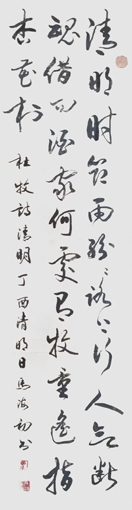 清明时节雨纷纷路上行人欲断
魂借问酒家何处有牧童遥指
杏花村 杜牧诗清明丁酉清明日马海初书